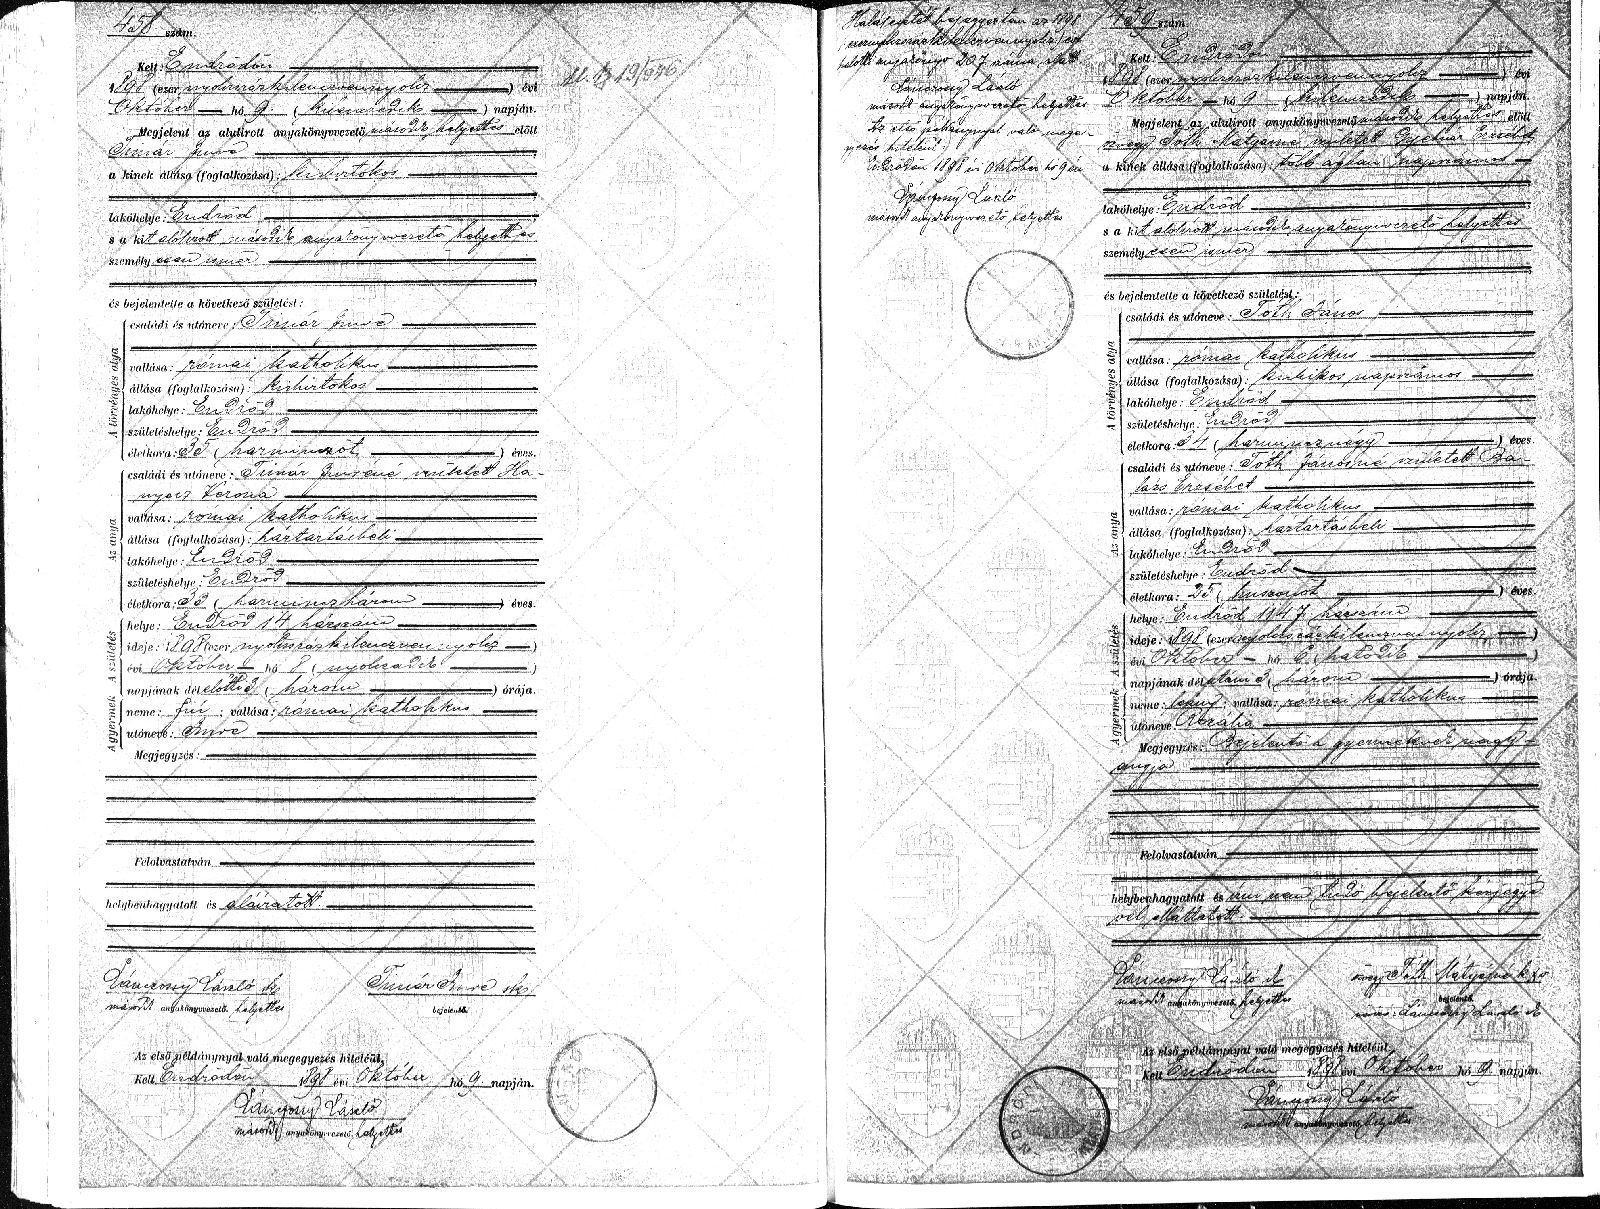 458 szám.
Kelt: Endrődön
1898 (ezer nyolcszázkilencvennyolcz) évi
Október hó 9. (kilenczedik) napján.
Megjelent az alulirott anyakönyvvezető második helyettes előtt
Timár Imre
a kinek állása (foglalkozása): kisbirtokos
lakóhelye: Endrőd
s a kit alólirott második anyakönyvvezető helyettes
személyesen ismer
és bejelentette a következő születést:
A törvényes atya
családi és utóneve: Timár Imre
vallása: római katholikus
állása (foglalkozása): kisbirtokos
lakóhelye: Endrőd
születéshelye: Endrőd
életkora: 35 (harminczöt) éves.
Az anya
családi és utóneve: Timár Imréné született Ha-
nyecz Verona
vallása: római katholikus
állása (foglalkozása): háztartásbeli
lakóhelye: Endrőd
születéshelye: Endrőd
életkora: 33 (harminczhárom) éves.
A gyermek A születés
helye: Endrőd 14 házszám
ideje: 1898 (ezer nyolczszázkilenczvennyolcz)
évi Október hó 8 (nyolczadik)
napjának délelőtti 3 (három) órája.
neme: fiú; vallása: római katholikus
utóneve: Imre
Megjegyzés:
Felolvastatván
helybenhagyatott és aláiratott
Lánczosy László sk Timár Imre sk
másodk anyakönyvvezető helyettes bejelentő.
Az első példánynyal való megegyezés hiteléül,
Kelt Endrődön 1898 évi Október hó 9 napján.
Lánczosy László
másodk anyakönyvvezető helyettes
Halálesetét bejegyeztem az 1898
halotti anyakönyv 207
Lánczosy László
második anyakönyvvezető helyettes
Az első példánynyal való mege-
gyezés hiteléül
Endrődön 1898 évi Október hó 9 én
Lánczosy László
másodk anyakönyvvezető helyettes
459 szám
Kelt: Endrődön
1898 (ezer nyolczszázkilenczvennyolcz) évi
Október hó 9 (kilenczedik) napján.
Megjelent az alulirott anyakönyvvezető második helyettes előtt
özvegy Tóth Mátyásné született Erzsébet
a kinek állása (foglalkozása): napszámos
lakóhelye: Endrőd
s a kit alólirott második anyakönyvvezető helyettes
személyesen ismer
és bejelentette a következő születést:
A törvényes atya
családi és utóneve: Tóth János
vallása: római katholikus
állása (foglalkozása): kubikos napszámos
lakóhelye: Endrőd
születéshelye: Endrőd
életkora: 34 (harmincznégy) éves
Az anya
családi és utóneve: Tóth Jánosné született Ba-
lázs Erzsébet
vallása: római katholikus
állása (foglalkozása): háztartásbeli
lakóhelye: Endrőd
születéshelye: Endrőd
életkora: 25 (huszonöt) éves
A gyermek A születés
helye: Endrőd 1947 házszám
ideje: 1898 (ezernyolczszázkilenczvennyolcz)
évi Október hó 6 (hatodik)
napjának délutáni 3 (három) órája
neme: leány; vallása: római katholikus
utóneve Rozália
Megjegyzés: Bejelentő a gyermeknek nagy-
anyja
Felolvastatván
helybenhagyatott és irni nem tudó bejelentő kézjegyé
vel elláttatott
Lánczosy László sk özvegy Tóth Mátyásné k x v
másodk anyakönyvvezető helyettes bejelentő.
Lánczosy László sk
Az első példánynyal való megegyezés hiteléül,
Kelt Endrődön 1898 évi Október hó 9 napján.
Lánczosy László
másodk anyakönyvvezető helyettes